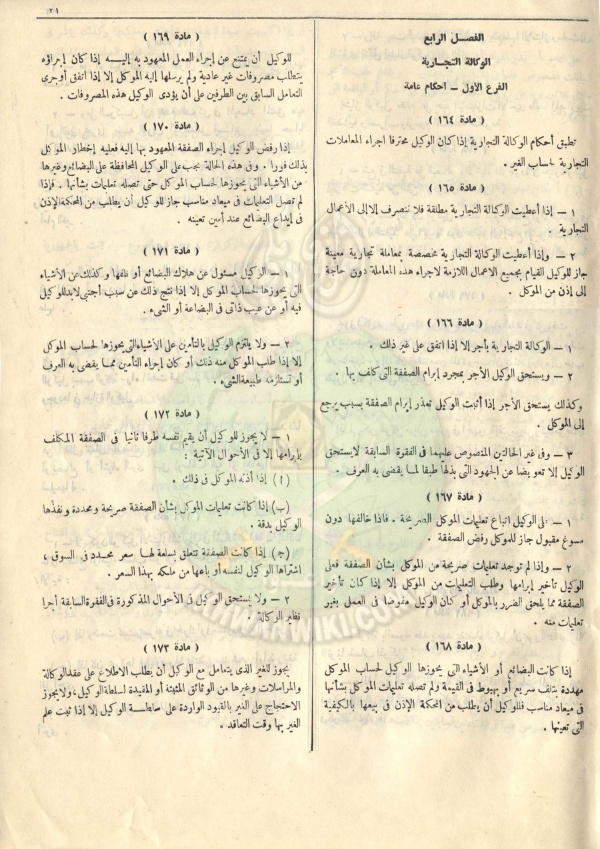 ٢١
الفصل الرابع
الوكالة التجارية
الفرع الأول - أحكام عامة
( مادة ١٦٤ )
تطبق أحكام الوكالة التجارية إذا كان الوكيل محترفا اجراء المعاملات
التجارية لحساب الغير .
( مادة ١٦٥ )
١ - إذا أعطيت الوكالة التجارية مطلقة فلا تنصرف إلا إلى الأعمال
التجارية .
٢ - وإذا أعطيت الوكالة التجارية مخصصة بمعاملة تجارية معينة
جاز للوكيل القيام بجميع الاعمال اللازمة لاجراء هذه المعاملة دون حاجة
إلى إذن من الموكل .
( مادة ١٦٦ )
١ - الوكالة التجارية بأجر إلا إذا اتفق على غير ذلك .
٢ - ويستحق الوكيل الأجر بمجرد إبرام الصفقة التى كلف بها .
وكذلك يستحق الأجر إذا أثبت الوكيل تعذر إبرام الصفقة بسبب يرجع
إلى الموكل .
٣ - وفى غير الحالتين المنصوص عليهما فى الفقرة السابقة لا يستحق
الوكيل إلا تعويضا عن الجهود التى بذلها طبقا لما يقضى به العرف .
( مادة ١٦٧ )
١ - على الوكيل اتباع تعليمات الموكل الصريحة . فاذا خالفها دون
مسوغ مقبول جاز للموكل رفض الصفقة .
٢ - وإذا لم توجد تعليمات صريحة من الموكل بشأن الصفقة فعلى
الوكيل تأخير إبرامها وطلب التعليمات من الموكل إلا إذا كان تأخير
الصفقة مما يلحق الضرر بالموكل أو كان الوكيل مفوضا فى العمل بغير
تعليمات منه .
( مادة ١٦٨ )
إذا كانت البضائع أو الأشياء التى يحوزها الوكيل لحساب الموكل
مهددة بتلف سريع أو بهبوط فى القيمة ولم تصله تعليمات الموكل بشأنها
فى ميعاد مناسب فللوكيل أن يطلب من المحكمة الإذن فى بيعها بالكيفية
التى تعينها .
( مادة ١٦٩ )
للوكيل أن يمتنع عن إجراء العمل المعهود به إليه إذا كان إجراؤه
يتطلب مصروفات غير عادية ولم يرسلها إليه الموكل إلا إذا اتفق أو جرى
التعامل السابق بين الطرفين على أن يؤدى الوكيل هذه المصروفات .
( مادة ١٧٠ )
إذا رفض الوكيل إجراء الصفقة المعهود بها إليه فعليه إخطار الموكل
بذلك فورا . وفى هذه الحالة يجب على الوكيل المحافظة على البضائع وغيرها
من الأشياء التى يحوزها لحساب الموكل حتى تصله تعليمات بشأنها . فإذا
لم تصل التعليمات فى ميعاد مناسب جاز للوكيل أن يطلب من المحكمة الإذن
فى إيداع البضائع عند أمين تعينه .
( مادة ١٧١ )
١ - الوكيل مسئول عن هلاك البضائع أو تلفها وكذلك عن الأشياء
التى يحوزها لحساب الموكل إلا إذا نتج ذلك عن سبب أجنبى لايد للوكيل
فيه أو عن عيب ذاتى فى البضاعة أو الشىء .
٢ - ولا يلتزم الوكيل بالتأمين على الأشياء التى يحوزها لحساب الموكل
إلا إذا طلب الموكل منه ذلك أو كان إجراء التأمين مما يقضى به العرف
أو تستلزمه طبيعة الشىء .
( مادة ١٧٢ )
١ - لا يجوز للوكيل أن يقيم نفسه طرفا ثانيا فى الصفقة المكلف
بإبرامها إلا فى الأحوال الآتية :
( ا ) إذا أذنه الموكل فى ذلك .
(ب) إذا كانت تعليمات الموكل بشأن الصفقة صريحة ومحددة ونفذها
الوكيل بدقة .
(ج) إذا كانت الصفقة تتعلق بسلعة لها سعر محدد فى السوق ،
اشتراها الوكيل لنفسه أو باعها من ملكه بهذا السعر .
٢ - ولا يستحق الوكيل فى الأحوال المذكورة فى الفقرة السابقة أجرا
نظير الوكالة .
( مادة ١٧٣ )
يجوز للغير الذى يتعامل مع الوكيل أن يطلب الاطلاع على عقد الوكالة
والمراسلات وغيرها من الوثائق المثبتة أو المقيدة لسلطة الوكيل ، ولا يجوز
الاحتجاج على الغير بالقيود الواردة على سلطة الوكيل إلا إذا ثبت علم
الغير بها وقت التعاقد .